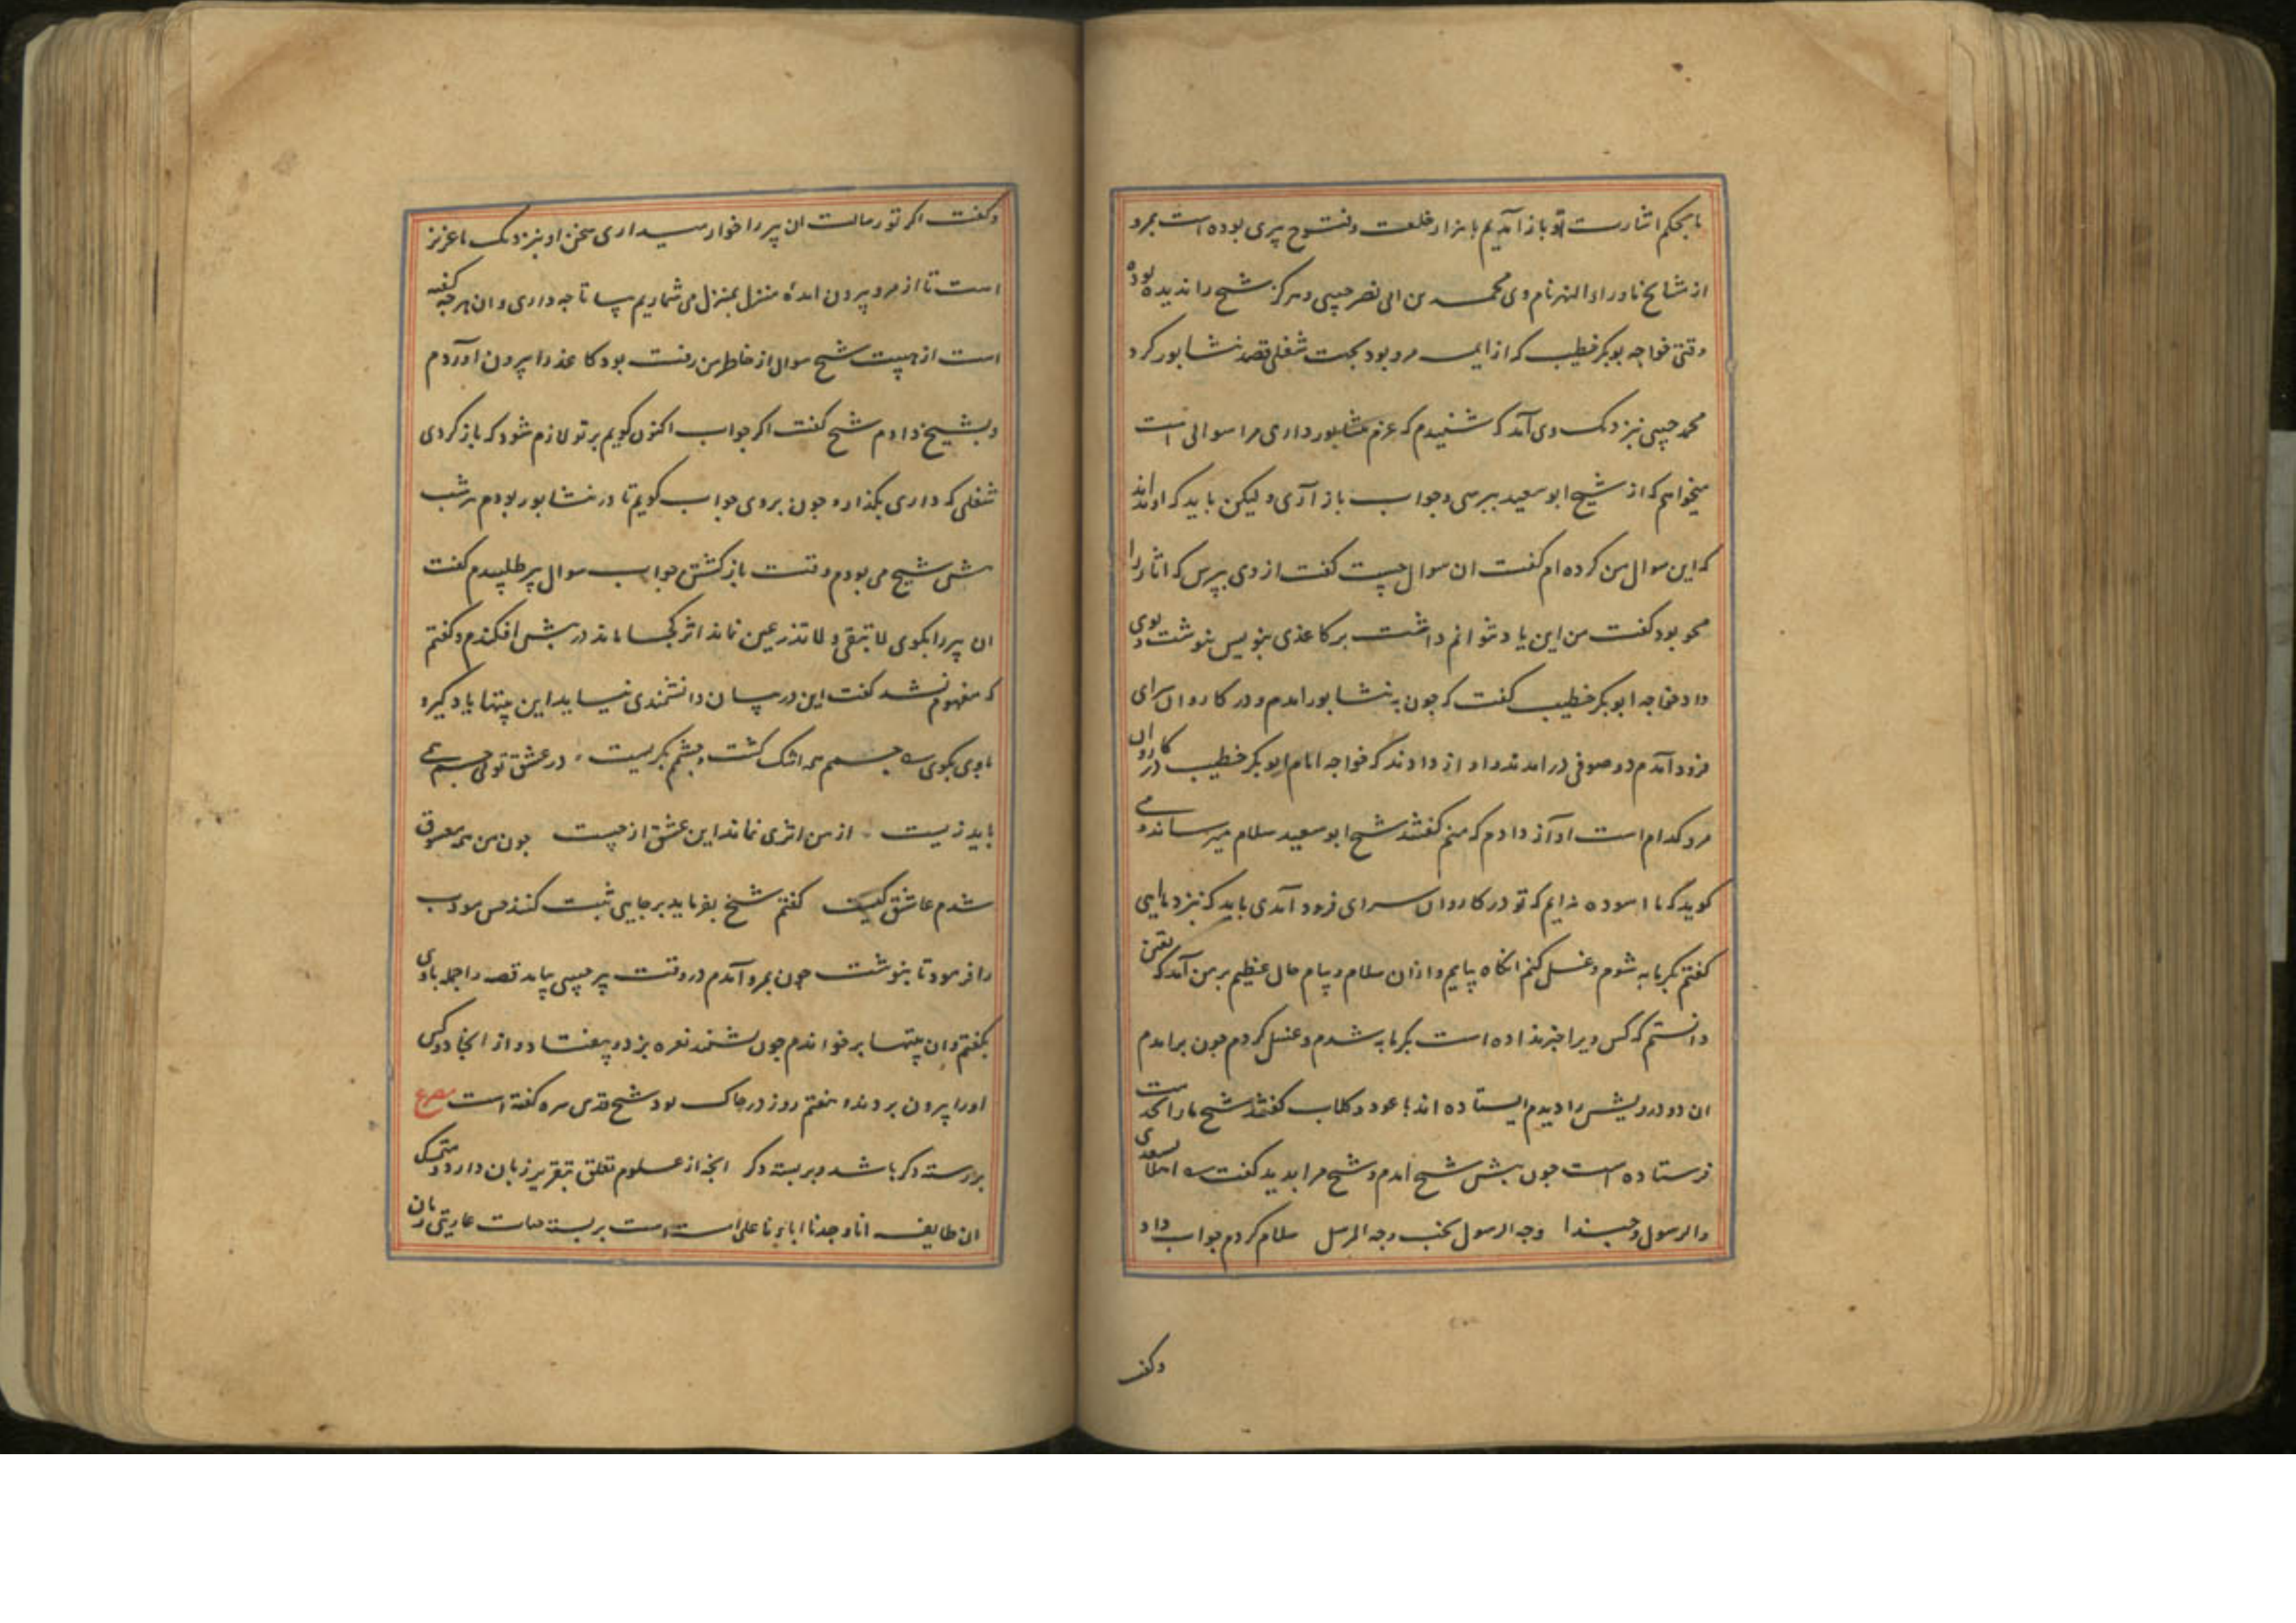 ما بحکم اشارت تو باز آمدیم با هزار خلعت و فتوح پیری بوده است بمرو
از مشایخ ماوراء النهر نام وی محمد بن ابی نصر حبیبی و هرگز شیخ را ندیده بوده
وقتی خواجه بوبکر خطیب که از ایمه مرو بود بجهت شغلی قصد نشابور کرد
محمد حبیبی نزدیک وی آمد که شنیدم که عزم نشابور داری مرا سوالی است
میخواهم که از شیخ ابو سعید بپرسی و جواب باز آری و لیکن باید که او نداند
که این سوال من کرده ام گفت ان سوال چیست گفت از وی بپرس که اثار را
محو بود گفت من این یاد نتوانم داشت بر کاغذی بنویس بنوشت و بوی
داد خواجه ابوبکر خطیب گفت که چون به نشابور امدم و در کاروان سرای
فرود آمدم دو صوفی در امدند و اواز دادند که خواجه امام ابوبکر خطیب در کاروان
مرو کدام است اواز دادم که منم گفتند شیخ ابو سعید سلام میرساند و می
کوید که ما اسوده نه ایم که تو در کاروان سرای فرود آمدی باید که نزد ما ایی
گفتم بگرمابه شوم و غسل کنم انکاه بیایم و ازان سلام و پیام حال عظیم بر من آمد که یقین
دانستم که کس ویرا خبر نداده است بگرمابه شدم و غسل کردم چون بر امدم
ان دو درویش را دیدم ایستاده اند با عود و گلاب گفتند شیخ ما را بخدمت
فرستاده است چون پیش شیخ امدم و شیخ مرا بدید گفت اهلا لسعدی
والرسول و حبذا وجه الرسول لحب وجه المرسل سلام کردم جواب داد
وکف
وکفت اکر تو رسالت ان پیر را خوار میداری سخن او بنزدیک ما عزیز
است تا از مرو بیرون امدهٔ منزل بمنزل می شماریم بیا تا چه داری و ان پیر چه گفته
است از هیبت شیخ سوال از خاطر من رفت بود کاغذ را بیرون اوردم
و بشیخ دادم شیخ گفت اکر جواب اکنون گویم بر تو لازم شود که باز گردی
شغلی که داری بگذار و چون بروی جواب گویم تا در نشابور بودم هر شب
پیش شیخ می بودم وقت باز گشتن جواب سوال پیر طلبیدم گفت
ان پیر را بگوی لا تبقی و لا تذر عین نماند اثر کجا ماند سر در پیش افکندم و گفتم
که مفهوم نشد گفت این در بیان دانشمندی نیاید این بیتها یاد گیر و
باوی بگوی جسمم همه اشک گشت و چشمم بگریست در عشق تو بی جسم همی
باید زیست از من اثری نماند این عشق از چیست چون من همه معشوق
شدم عاشق کیست گفتم شیخ بفرماید بر جایی ثبت کنند حسن مودب
را فرمود تا بنوشت چون بمرو آمدم در وقت پیر حبیبی بیامد قصه را جمله باوی
بگفتم و ان بیتها بر خواندم چون بشنید نعره بزد و بیفتاد و از انجا دو کس
اورا بیرون بردند و هفتم روز در خاک بود شیخ قدس سره گفته است مصرع
بر رسته دگر باشد و بر بسته دگر انچه از علوم تعلق بتقریر زبان دارد و متمسک
ان طایفه انا وجدنا اباءنا علی امة است بر بسته حیات عاریتی زبان